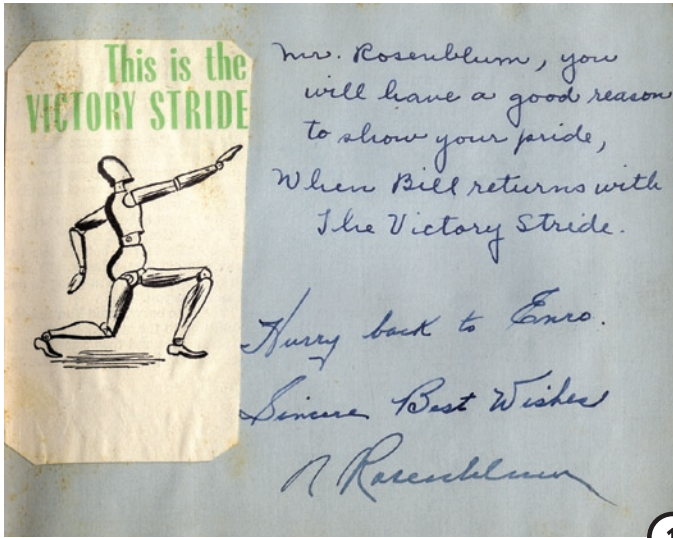 This is the
VICTORY STRIDE
Mr. Rosenblum, you
will have a good reason
to show your pride,
When Bill returns with
The Victory Stride.
Hurry back to Enro.
Sincere Best Wishes
N Rosenblum
1